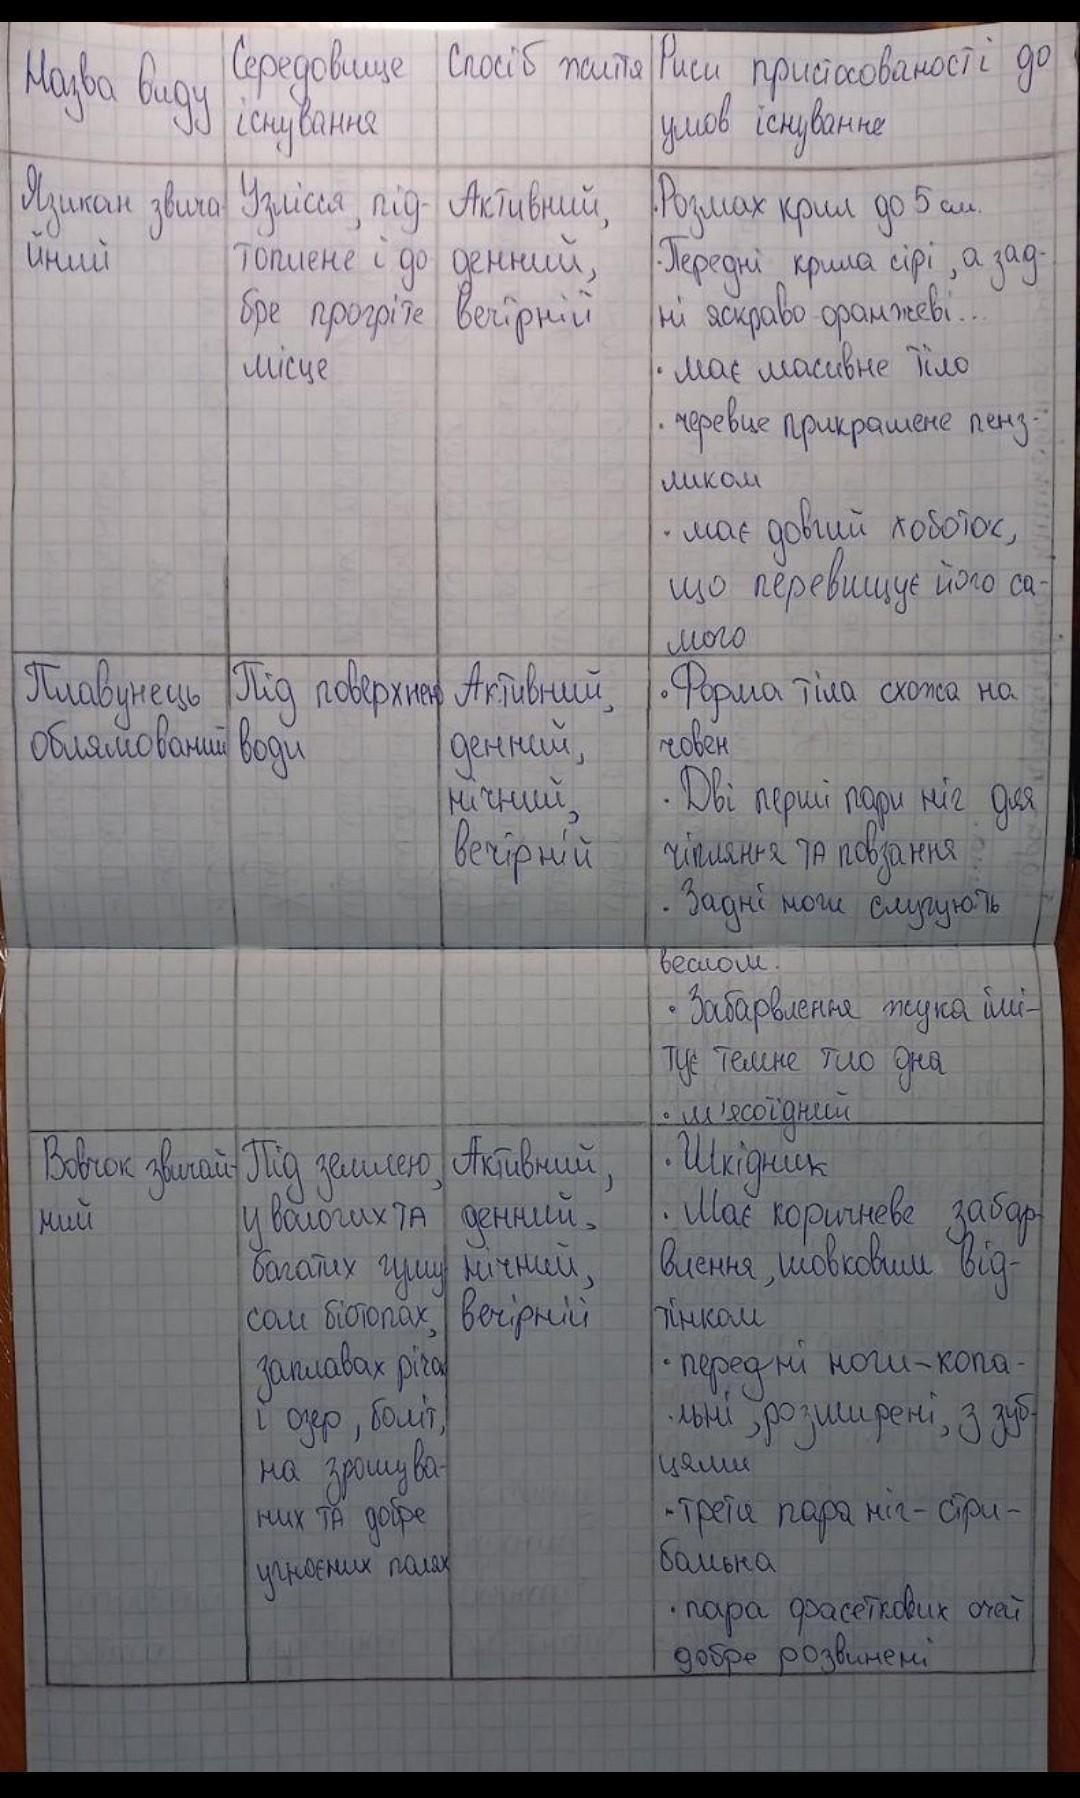 Назва виду
Середовище
існування
Спосіб життя
Риси пристосованості до
умов існування
Язикан звича
йний
Узлісся, під-
топлене і до
бре прогріте
місце
Активний,
денний,
вечірній
·Розмах крил до 5 см.
·Передні крила сірі, а зад-
ні яскраво оранжеві...
· має масивне тіло
· черевце прикрашене пенз-
ликом
· має довгий хоботок,
що перевищує його са-
мого
Плавунець
облямований
Під поверхнею
води
Активний,
денний,
нічний,
вечірній
· Форма тіла схожа на
човен
· Дві перші пари ніг для
чіпляння та повзання
· Задні ноги слугують
веслом.
· Забарвлення жука імі-
тує темне тло дна
· м'ясоїдний
Вовчок звичай-
ний
Під землею,
у вологих та
багатих гуму
сом біотопах,
заплавах річа
і озер, боліт,
на зрошува-
них та добре
угноєних полях
Активний,
денний,
нічний,
вечірній
· Шкідник
· Має коричневе забар
влення, шовковим від-
тінком
· передні ноги-копа-
льні, розширені, з зуб-
цями
· третя пара ніг-стри-
бальна
· пара фасеткових очей
добре розвинені